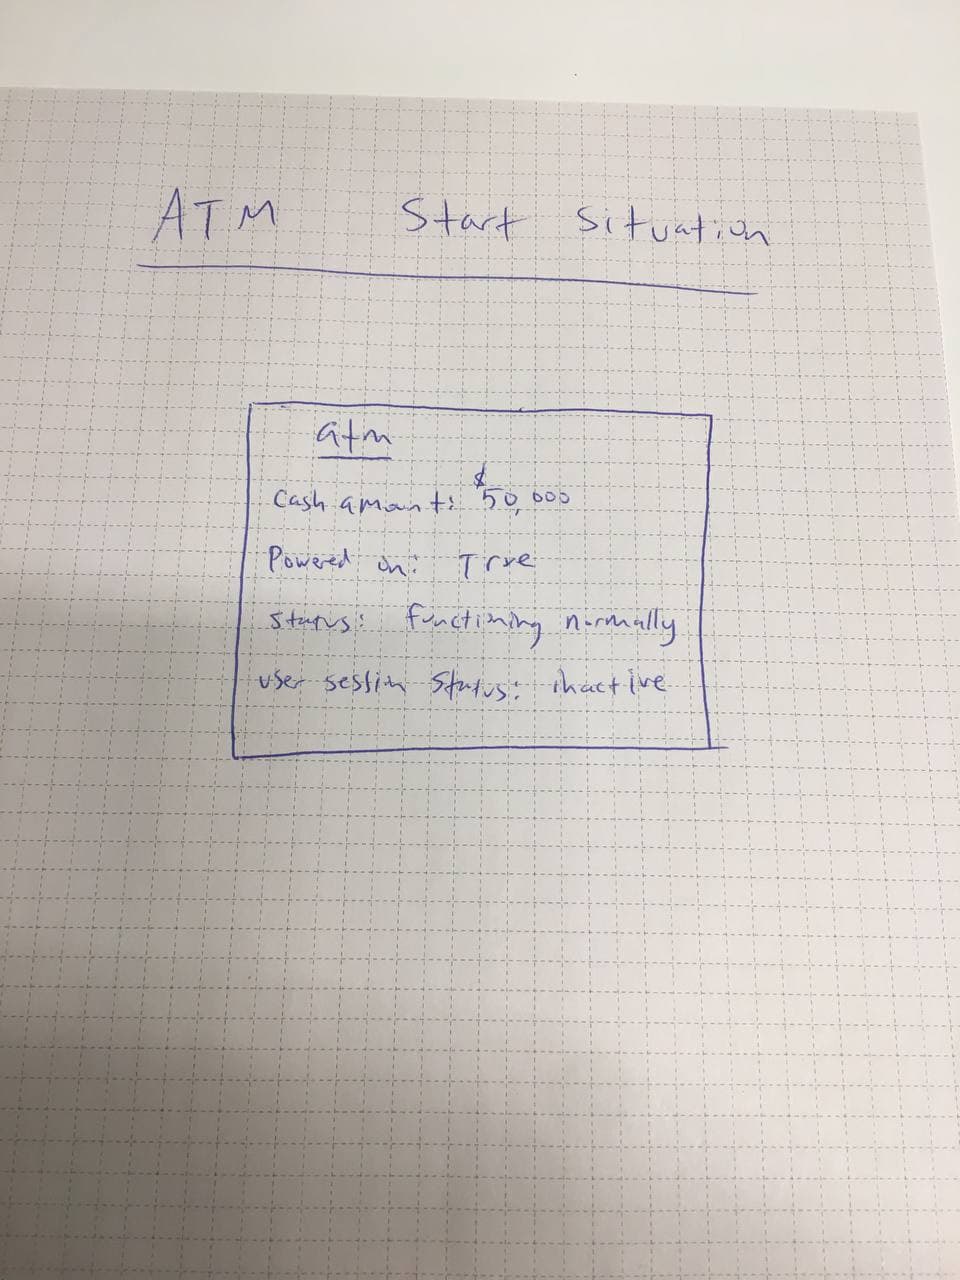 ATM Start Situation
atm
Cash amount: $50,000
Powered on: True
Status: functioning normally
User session status: inactive